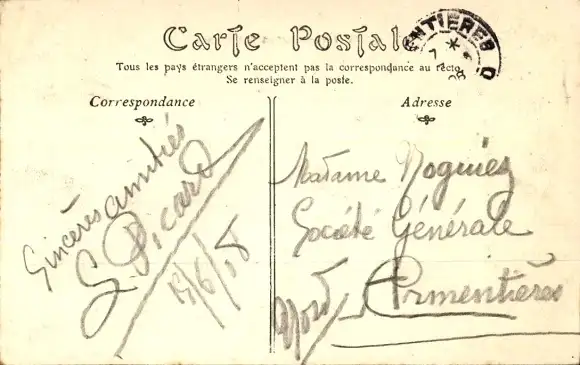 Carte Postale
Tous les pays étrangers n'acceptent pas la correspondance au recto.
Se renseigner à la poste.
Correspondance
Adresse
Sincères amitiés
G. Picard
Madame
Société Générale
Armentières
Nord